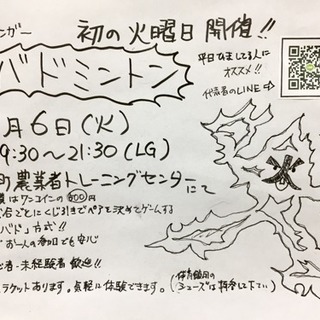 ンガー
初の火曜日開催!!
バドミントン
平日ひましてる人に
オススメ!!
代表者のLINE⇨
月6日(火)
9:30〜21:30(LG)
町農業者トレーニングセンターにて
はワンコインの500円
ごとにくじ引きでペアを決めてゲームする
バド」方式!!
の参加でも安心
者・未経験者歓迎!!
ラケットあります。気軽に体験できます。
(体育館用の
シューズは持参して下さい)
火